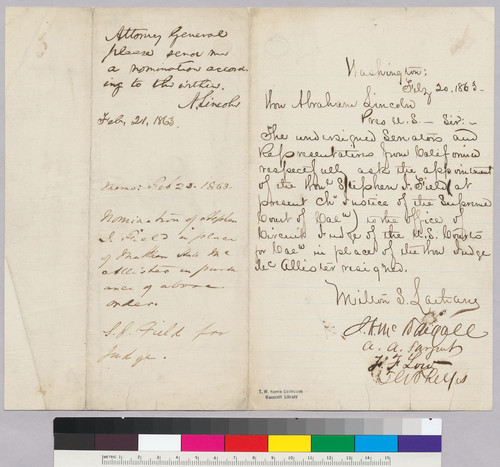 Attorney General
please send me
a nomination accord-
ing to the within.
A. Lincoln
Feb. 21. 1863.
Feb 23. 1863.
Nomination of Stephen
J. Field in place
of
Allister in pursu
ance of above
order.
S. J. Field for
Judge.
Washington:
Feby 20. 1863-
Hon Abraham Lincoln
Pres U.S - Sir:-
The undersigned Senators and
Representatives from California
respectfully ask the appointment
of the Hon. Stephen J. Field (at
present Chf Justice of the Supreme
Court of Cal) to the office of
Circuit Judge of the U.S. Courts
for Cal in place of the Hon Judge
Mc Allister resigned.
Milton S. Latham
J. A. McDougall
A. A. Sargent
F. F. Low
T. G. Phelps
T. W. Norris Collection
Bancroft Library